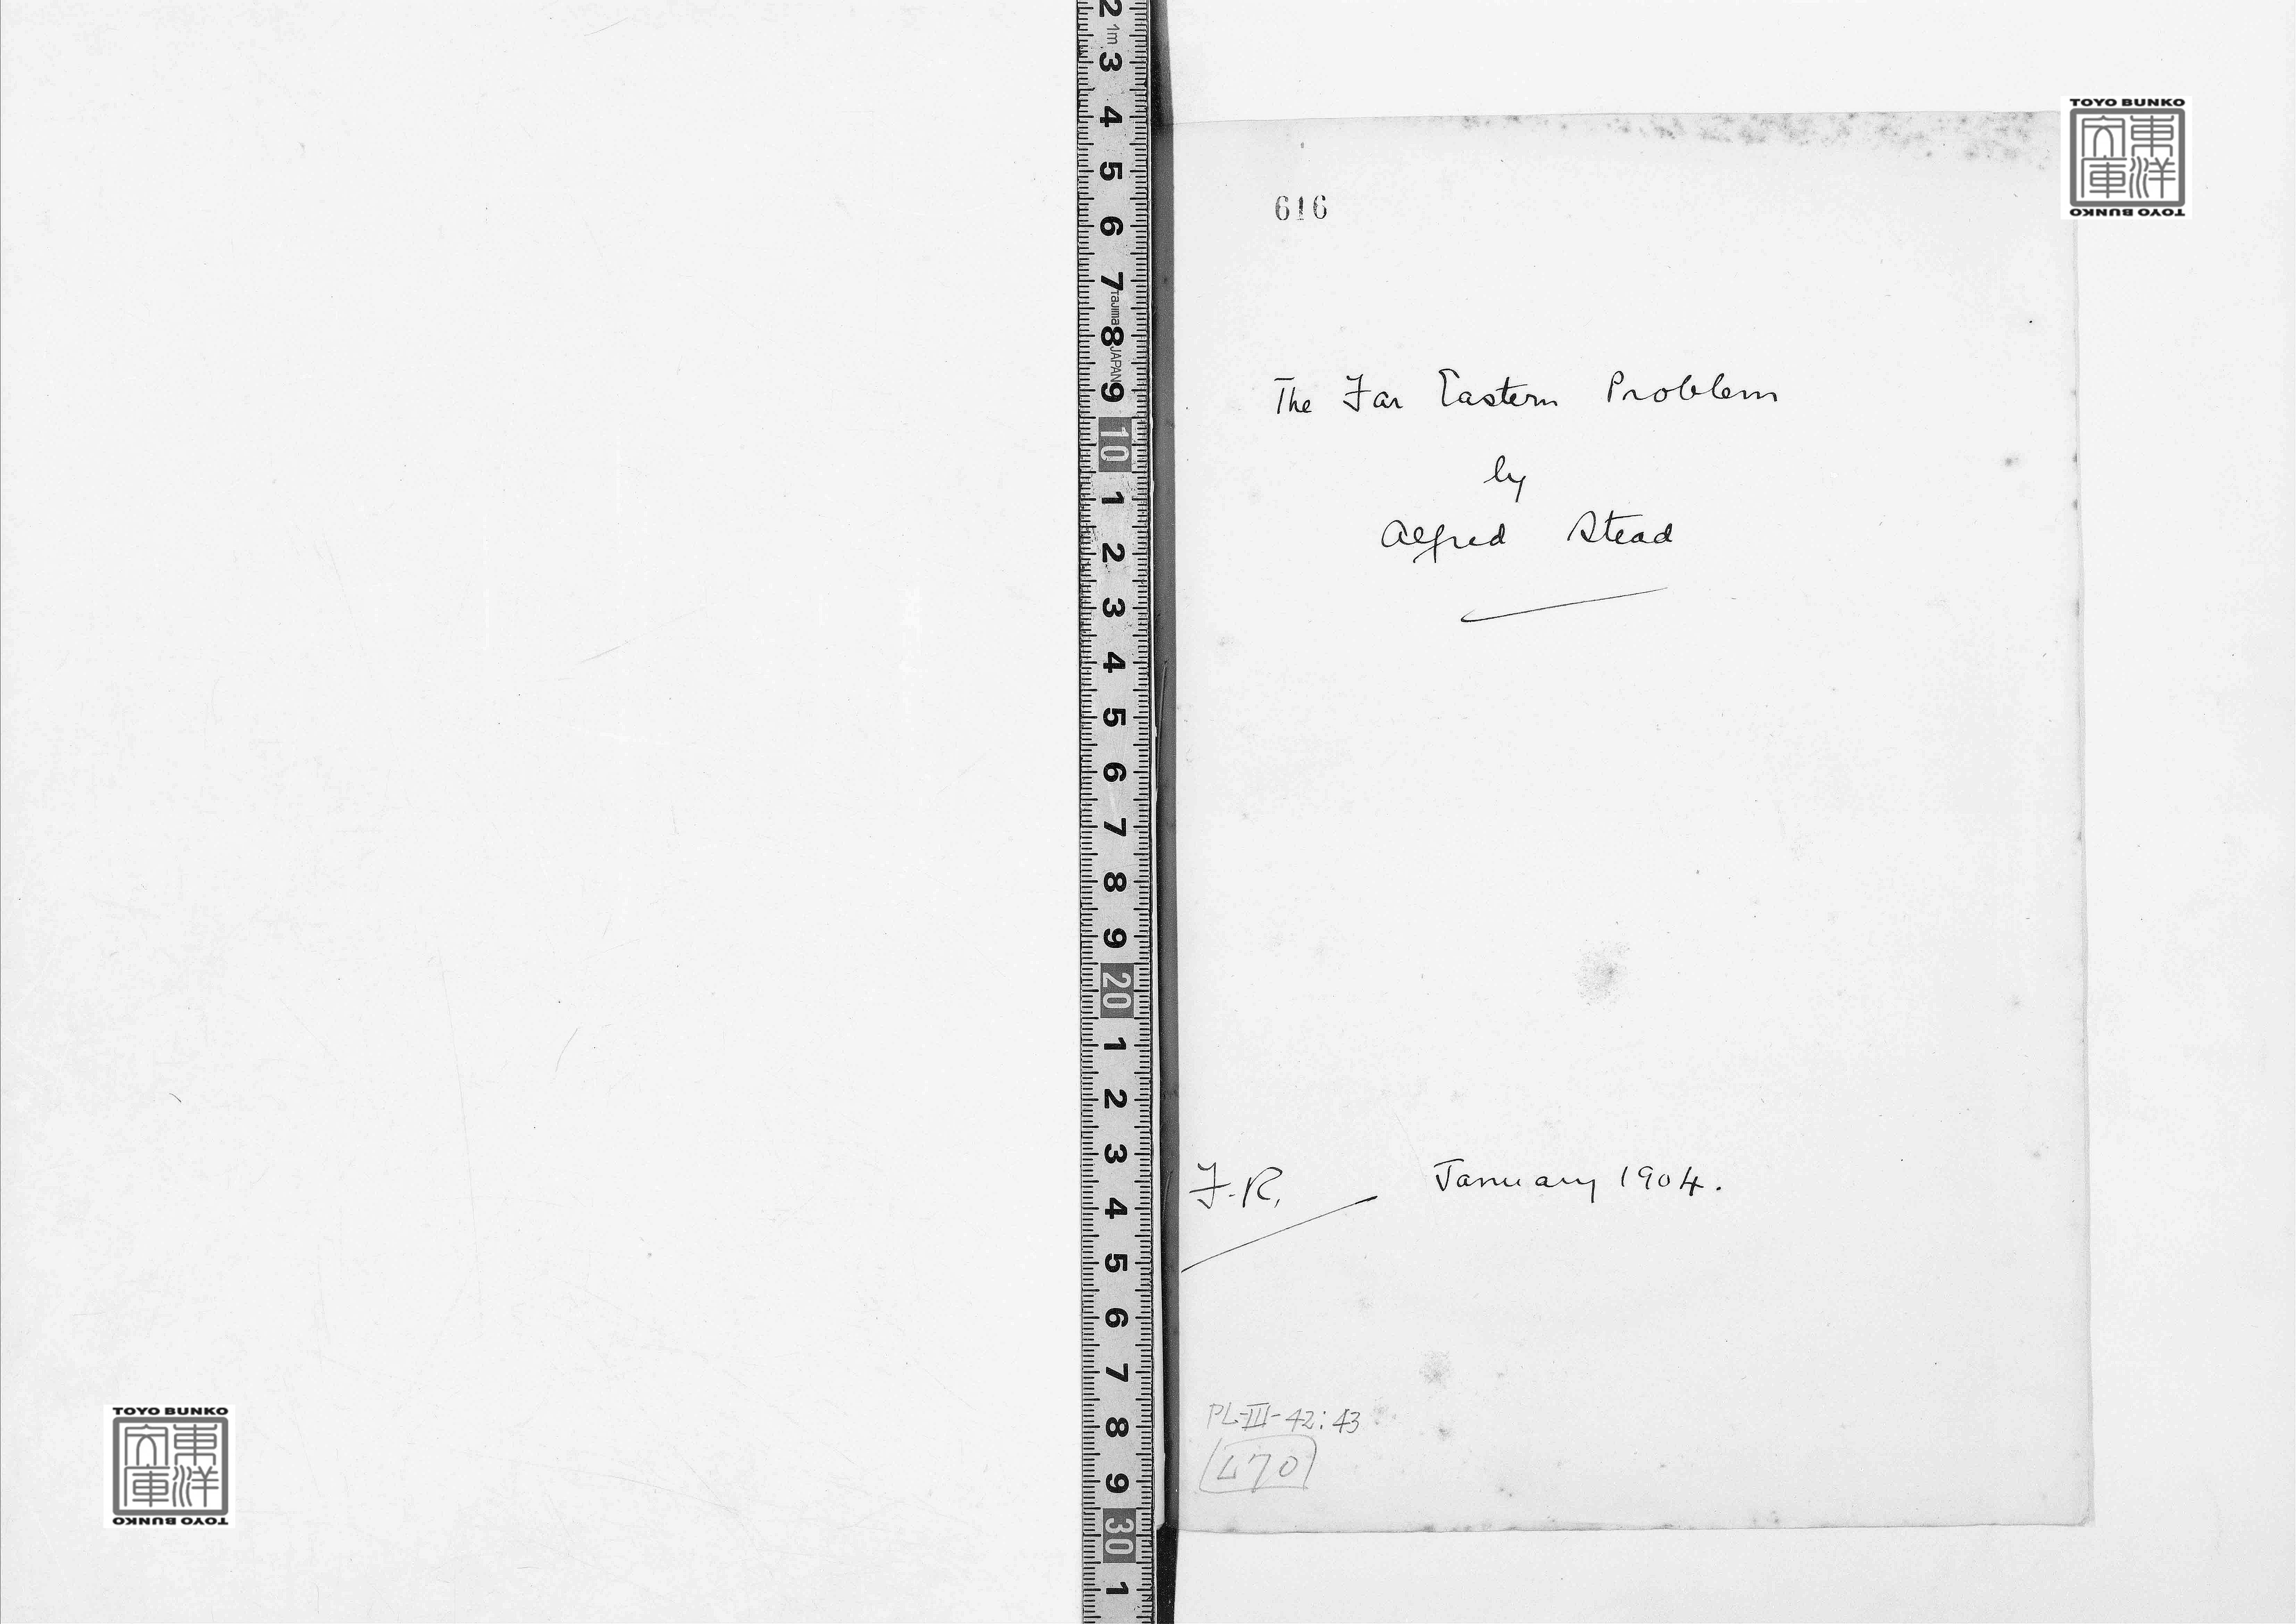 616
The Far Eastern Problem
by
Alfred Stead
F.R. January 1904.
PL-III-42:43
470
TOYO BUNKO
東洋
文庫
TOYO BUNKO
TOYO BUNKO
東洋
文庫
TOYO BUNKO
2 1m 3 4 5 6 7 Tajima 8 JAPAN 9 10 1 2 3 4 5 6 7 8 9 20 1 2 3 4 5 6 7 8 9 30 1